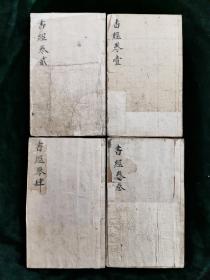 書經卷壹
書經卷貳
書經卷叁
書經卷肆